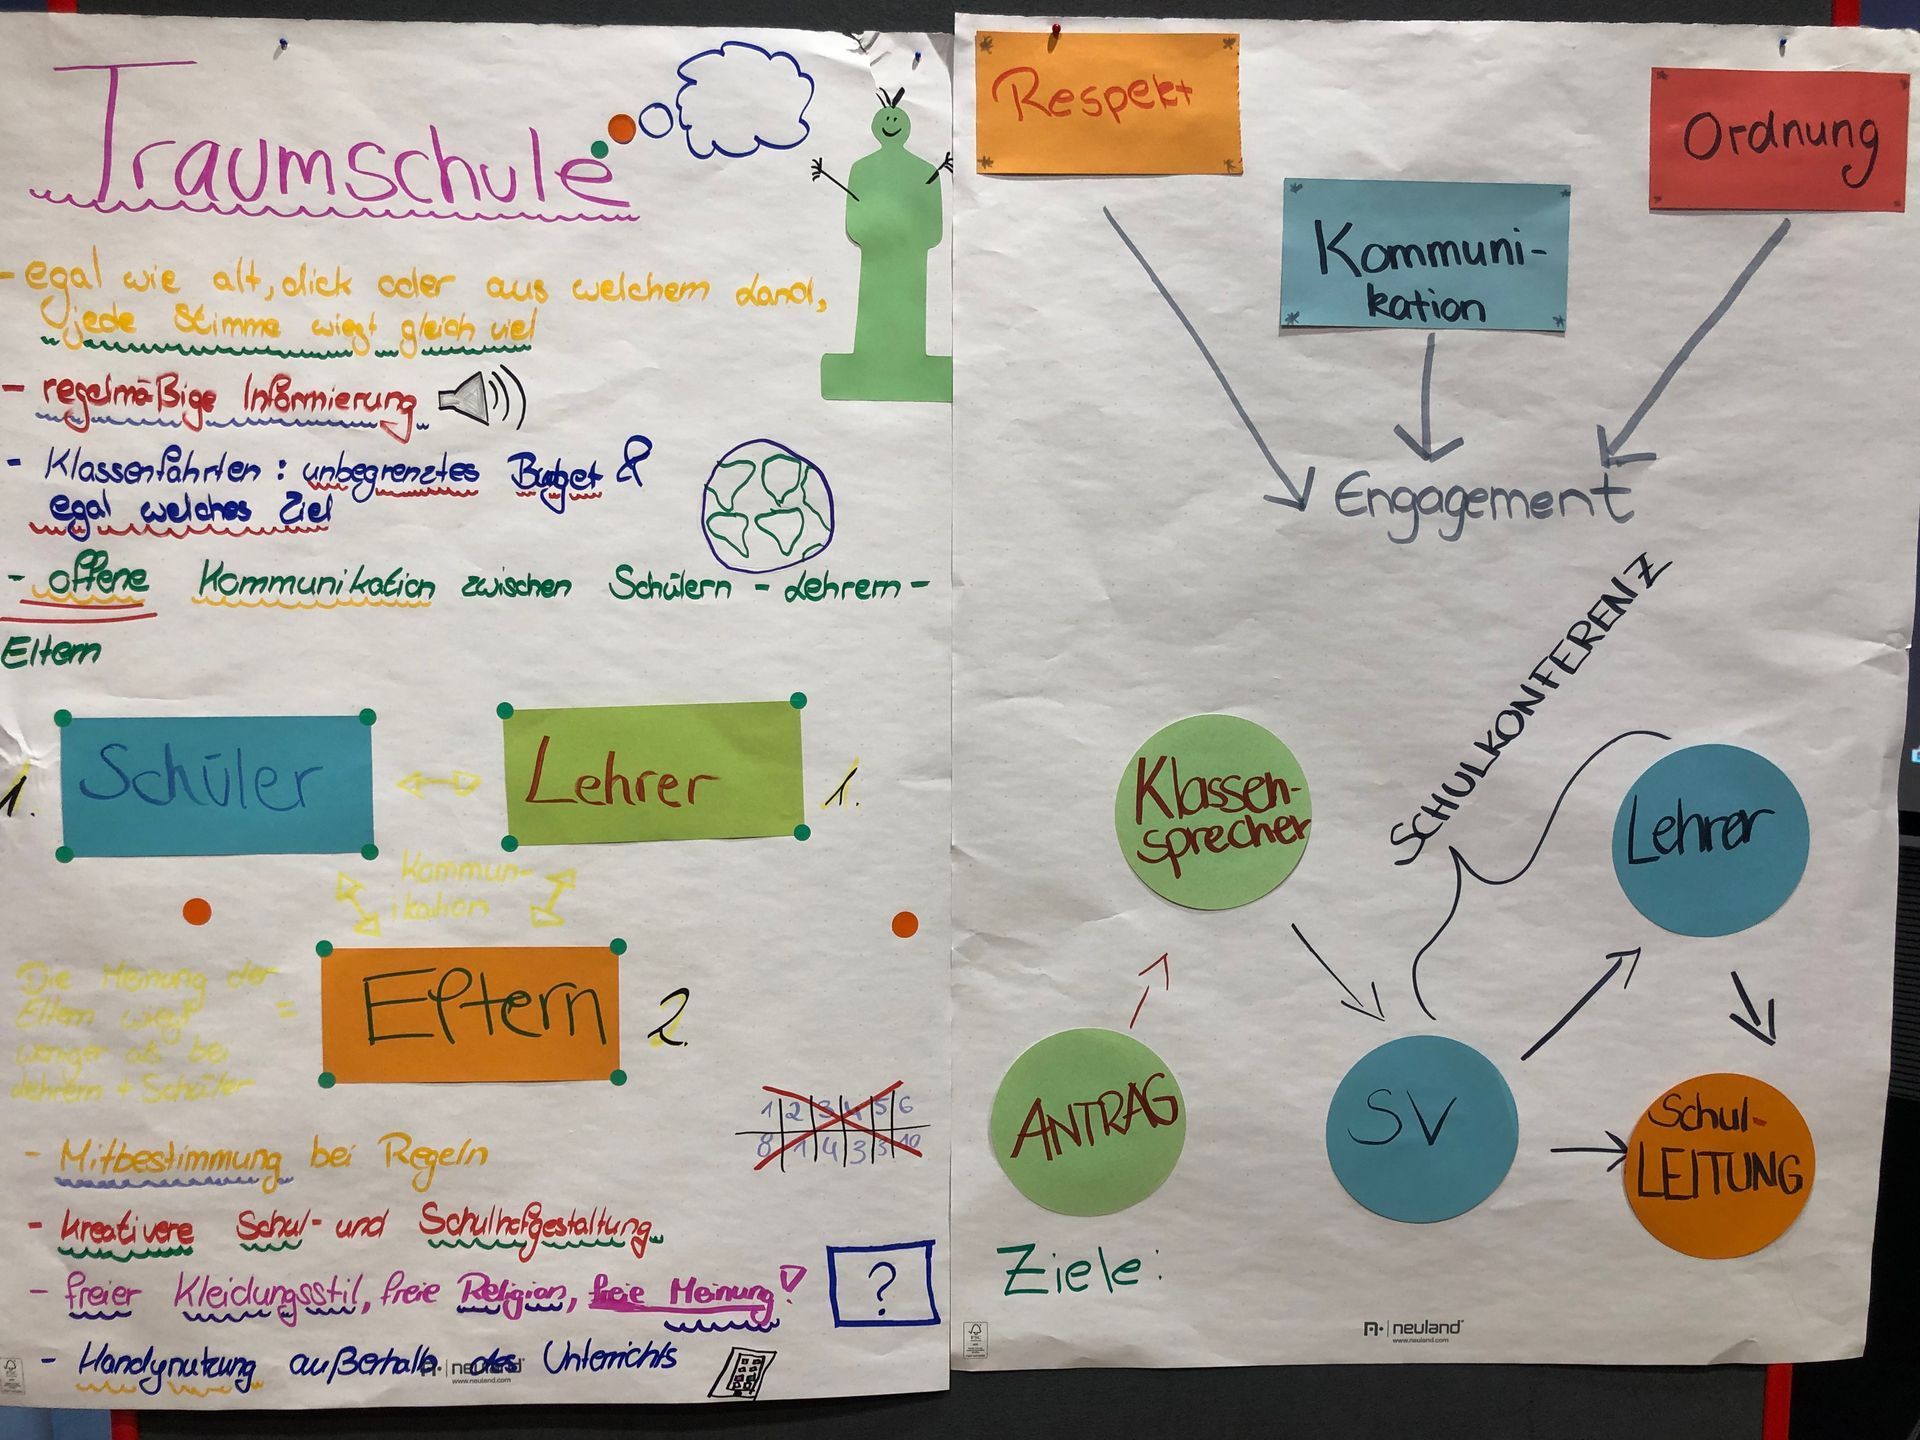 Traumschule
- egal wie alt, dick oder aus welchem Land,
jede Stimme wiegt gleich viel
- regelmäßige Informierung
- Klassenfahrten : unbegrenztes Budget &
egal welches Ziel
- offene Kommunikation zwischen Schülern - Lehrern -
Eltern
1.
Schüler
Lehrer
1.
Kommun-
ikation
Die Meinung der
Eltern wiegt
weniger als bei
Lehrern + Schüler
=
Eltern
2.
1 2 3 4 5 6
8 1 4 3 3 10
- Mitbestimmung bei Regeln
- kreativere Schul- und Schulhofgestaltung
- freier Kleidungsstil, freie Religion, freie Meinung!
?
- Handynutzung außerhalb des Unterrichts
neuland
www.neuland.com
Respekt
Kommuni-
kation
Ordnung
Engagement
SCHULKONFERENZ
Klassen-
sprecher
Lehrer
ANTRAG
SV
Schul-
LEITUNG
Ziele:
neuland
www.neuland.com